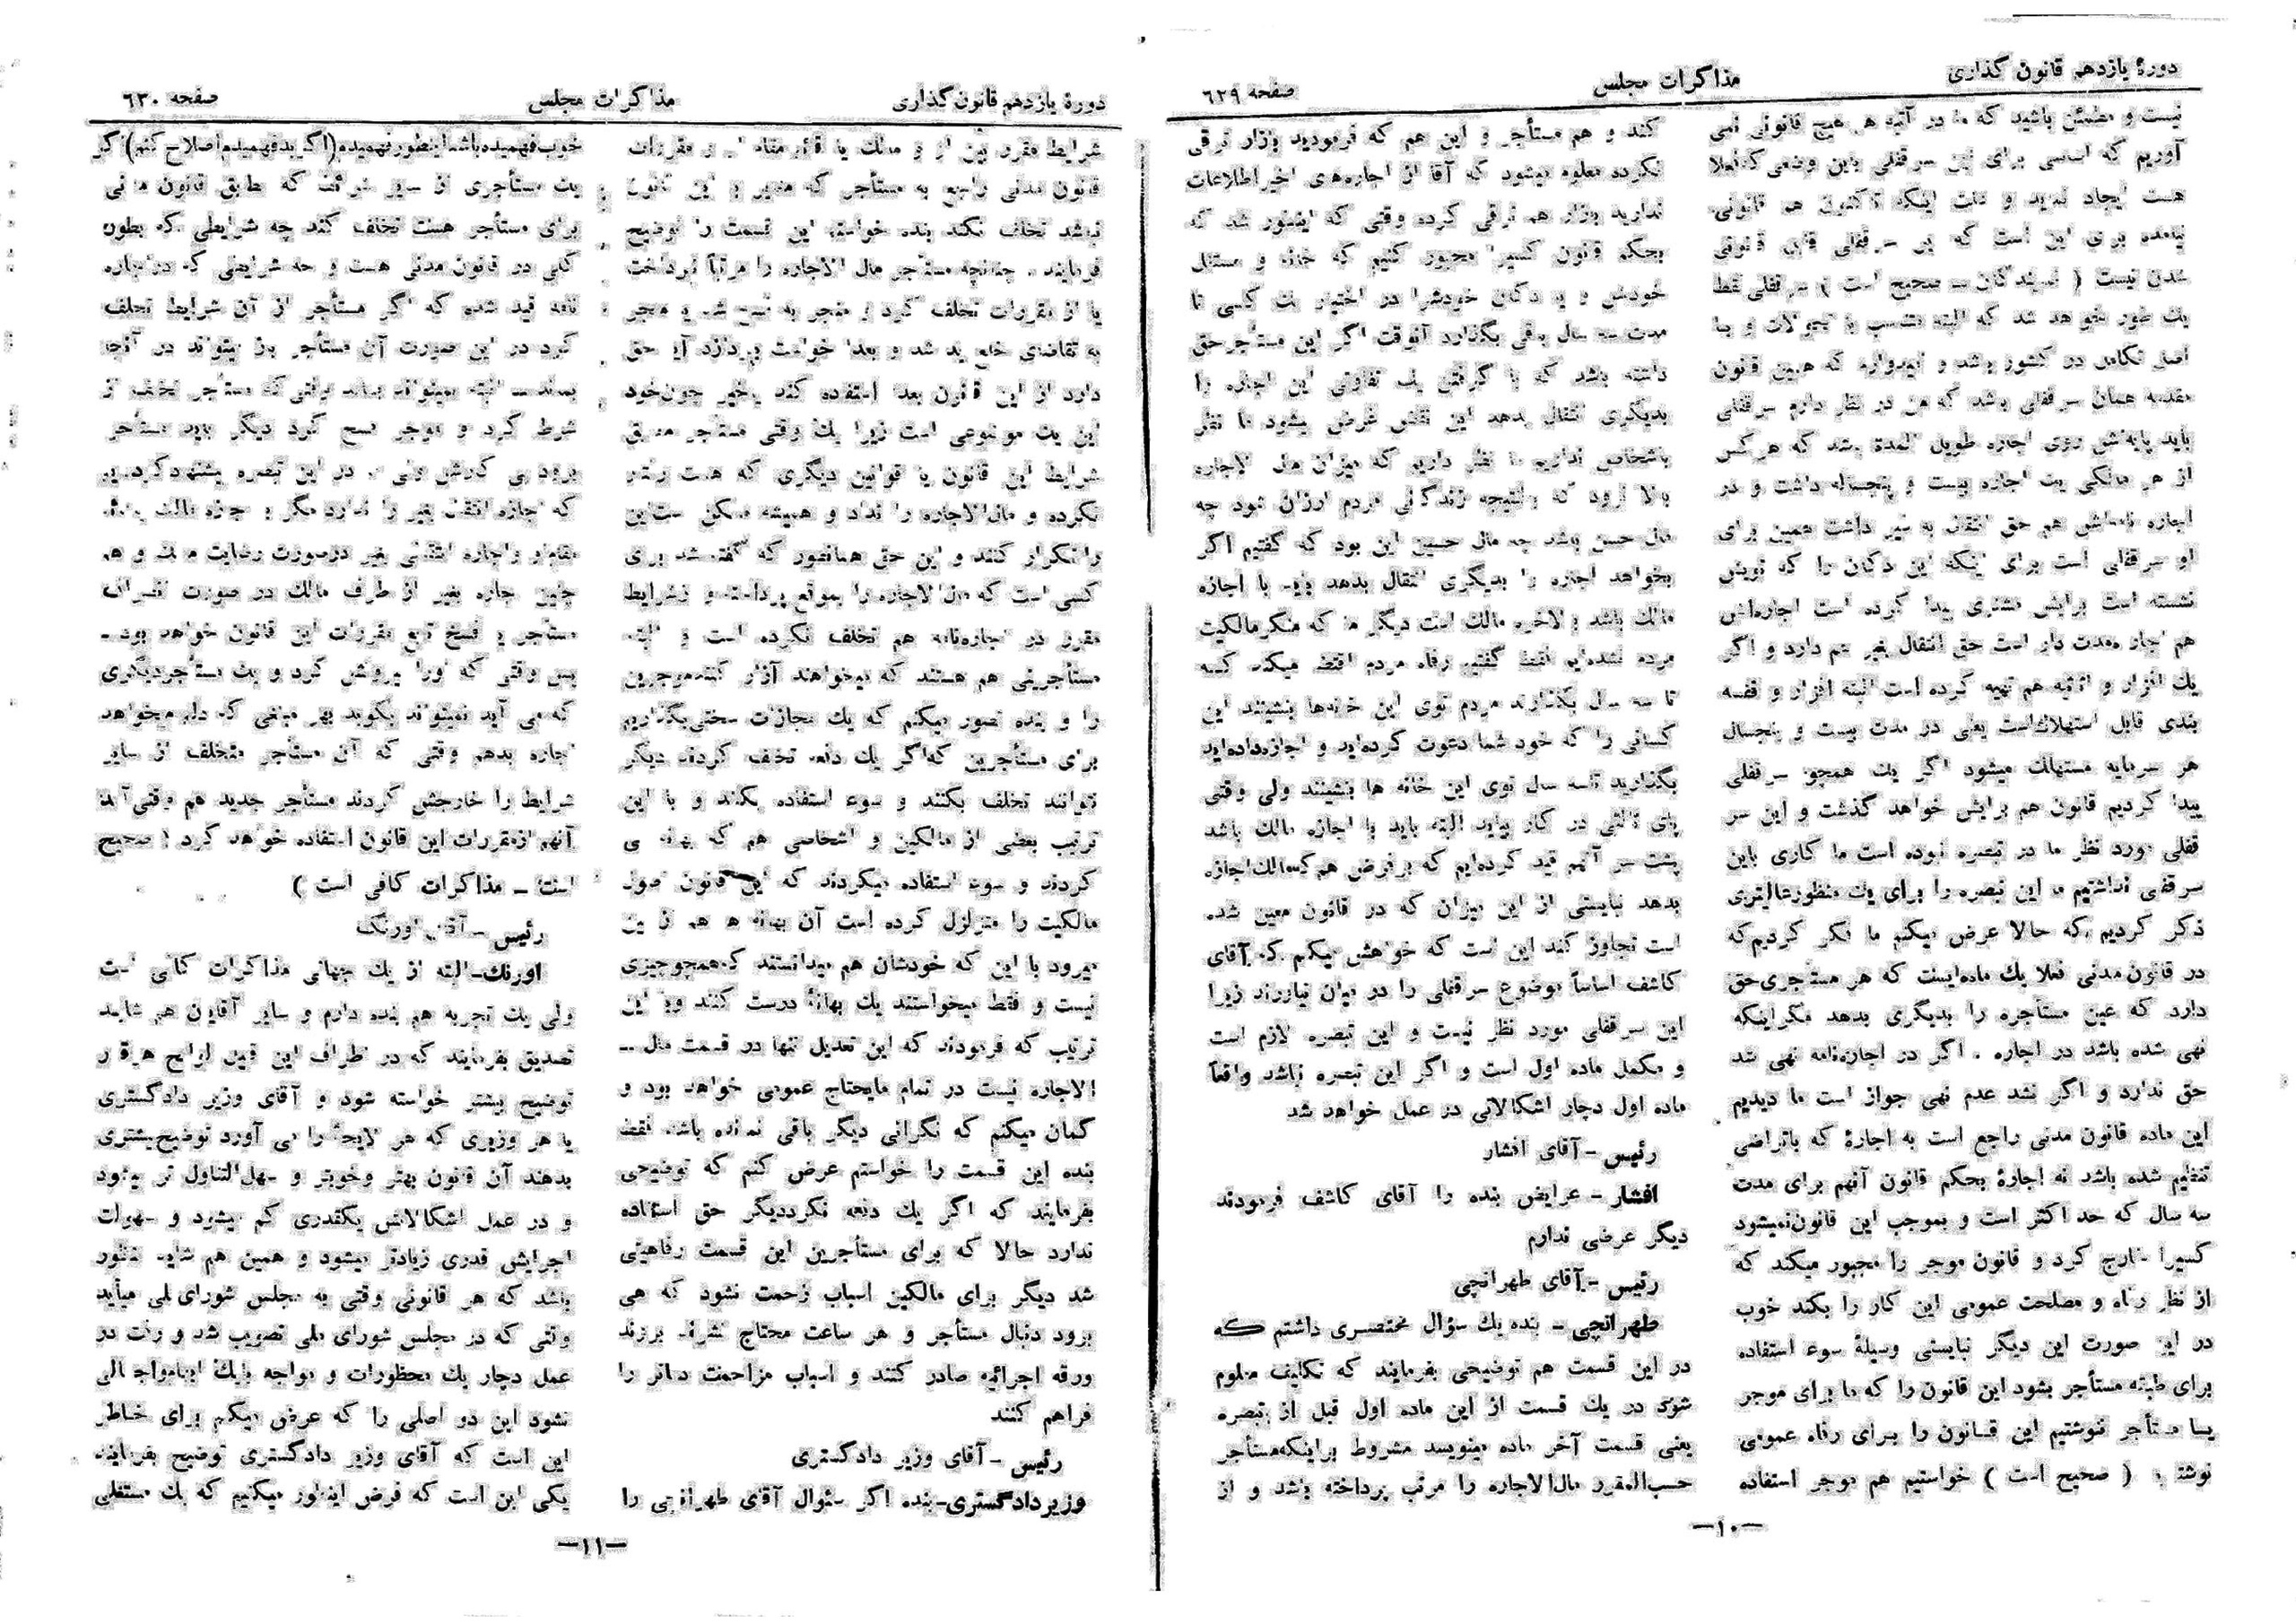 دورۀ یازدهم قانون گذاری
مذاکرات مجلس
صفحه ٦٢٩
نیست و مطمئن باشید که ما در آتیه هم هیچ قانونی نمی
آوریم که اساسی برای این سرقفلی باین وضعی که فعلا
هست ایجاد نماید و علت اینکه تاکنون هم قانونی
نیامده برای این است که این سرقفلی قابل قانونی
شدن نیست ( نمایندگان ــ صحیح است ) سرقفلی فقط
یك طور خواهد شد که البته متناسب با تحولات و با
اصل تکامل در کشور باشد و امیدوارم که همین قانون
مقدمه همان سرقفلی باشد که من در نظر دارم سرقفلی
باید پایه‌اش روی اجاره طویل المدة باشد که هر کس
از هر مالکی یك اجاره بیست و پنجساله داشت و در
اجاره نامه‌اش هم حق انتقال به غیر داشت همین برای
او سرقفلی است برای اینکه این دکان را که تویش
نشسته است برایش مشتری پیدا کرده است اجاره‌اش
هم اجاره مدت دار است حق انتقال بغیر هم دارد و اگر
یك افزار و اثاثیه هم تهیه کرده است البته افزار و قفسه
بندی قابل استهلاك‌است یعنی در مدت بیست و پنجسال
هر سرمایه مستهلك میشود اگر یك همچو سرقفلی
پیدا کردیم قانون هم برایش خواهد گذشت و این سر
قفلی مورد نظر ما در تبصره نبوده است ما کاری باین
سرقفلی نداشتیم ما این تبصره را برای یك منظورعالیتری
ذکر کردیم که حالا عرض میکنم ما فکر کردیم که
در قانون مدنی فعلا یك ماده‌ایست که هر مستأجری حق
دارد که عین مستأجره را بدیگری بدهد مگر اینکه
نهی شده باشد در اجاره . اگر در اجاره‌نامه نهی شد
حق ندارد و اگر نشد عدم نهی جواز است ما دیدیم
این ماده قانون مدنی راجع است به اجارۀ که باتراضی
تنظیم شده باشد نه اجارۀ بحکم قانون آنهم برای مدت
سه سال که حد اکثر است و بموجب این قانون نمیشود
کسیرا خارج کرد و قانون موجر را مجبور میکند که
از نظر رفاه و مصلحت عمومی این کار را بکند خوب
در این صورت این دیگر نبایستی وسیلۀ سوء استفاده
برای طبقه مستأجر بشود این قانون را که ما برای موجر
یا مستأجر ننوشتیم این قانون را برای رفاه عمومی
نوشتیم ( صحیح است ) خواستیم هم موجر استفاده
کند و هم مستأجر و این هم که فرمودید بازار ترقی
نکرده معلوم میشود که آقا از اجاره‌های اخیر اطلاعات
ندارید بازار هم ترقی کرده وقتی که اینطور شد که
بحکم قانون کسیرا مجبور کنیم که خانه و مستغل
خودش و یا دکان خودشرا در اختیار یك کسی تا
مدت سه سال باقی بگذارد آنوقت اگر این مستأجر حق
داشته باشد که با گرفتن یك تفاوتی این اجاره را
بدیگری انتقال بدهد این نقض غرض میشود ما نظر
باشخاص نداریم ما نظر داریم که میزان مال الاجاره
بالا نرود که بالنتیجه زندگانی مردم ارزان شود چه
مال حسن باشد چه مال حسین این بود که گفتیم اگر
بخواهد اجاره را بدیگری انتقال بدهد باید با اجازه
مالك باشد بالاخره مالك است دیگر ما که منکر مالکیت
مردم نشده‌ایم فقط گفتیم رفاه مردم اقتضا میکند که
تا سه سال بگذارند مردم توی این خانه‌ها بنشینند این
کسانی را که خود شما دعوت کرده‌اید و اجازه داده‌اید
بگذارید تا سه سال توی این خانه ها بنشینند ولی وقتی
پای ثالثی در کار بیاید البته باید با اجازه مالك باشد
پشت سر آنهم قید کرده‌ایم که بر فرض هم که مالك اجازه
بدهد نبایستی از این میزان که در قانون معین شده
است تجاوز کند این است که خواهش میکنم که آقای
کاشف اساساً موضوع سرقفلی را در میان نیاورند زیرا
این سرقفلی مورد نظر نیست و این تبصره لازم است
و مکمل ماده اول است و اگر این تبصره نباشد واقعاً
ماده اول دچار اشکالاتی در عمل خواهد شد
رئیس ـ آقای افشار
افشار ـ عرایض بنده را آقای کاشف فرمودند
دیگر عرضی ندارم
رئیس ـ آقای طهرانچی
طهرانچی ـ بنده یك سؤال مختصری داشتم که
در این قسمت هم توضیحی بفرمایند که تکلیف معلوم
شود در یك قسمت از این ماده اول قبل از تبصره
یعنی قسمت آخر ماده مینویسد مشروط براینکه مستأجر
حسب‌المقرر مال‌الاجاره را مرتب پرداخته باشد و از
ـ١٠ـ
دورۀ یازدهم قانون گذاری
مذاکرات مجلس
صفحه ٦٣٠
شرایط مقرره بین او و مالك یا قائم مقام او و مقررات
قانون مدنی راجع به مستأجر که مغایر با این قانون
نباشد تخلف نکند بنده خواستم این قسمت را توضیح
فرمایند . چنانچه مستأجر مال الاجاره را مرتباً نپرداخت
یا از مقررات تخلف کرد و منجر به فسخ شد و منجر
به تقاضای خلع ید شد و بعداً خواست بپردازد آیا حق
دارد از این قانون بعداً استفاده کند یا خیر چون خود
این یك موضوعی است زیرا یك وقتی مستأجر مطابق
شرایط این قانون یا قوانین دیگری که هست رفتار
نکرده و مال‌الاجاره را نداد و همیشه ممکن است این
را تکرار کنند و این حق همانطور که گفته شد برای
کسی است که مال‌الاجاره را بموقع پرداخته و از شرایط
مقرر در اجاره‌نامه هم تخلف نکرده است و البته
مستأجرینی هم هستند که میخواهند آزار کنند موجرین
را و بنده تصور میکنم که یك مجازات سختی بگذاریم
برای مستأجرین که اگر یك دفعه تخلف کردند دیگر
نتوانند تخلف بکنند و سوء استفاده بکنند و با این
ترتیب بعضی از مالکین و اشخاصی هم که بهانه می
کردند و سوء استفاده میکردند که این قانون اصول
مالکیت را متزلزل کرده است آن بهانه ها هم از بین
میرود با این که خودشان هم میدانستند که همچو چیزی
نیست و فقط میخواستند یك بهانۀ درست کنند و با این
ترتیب که فرمودند که این تعدیل تنها در قسمت مال ــ
الاجاره نیست در تمام مایحتاج عمومی خواهد بود و
گمان میکنم که نگرانی دیگر باقی نمانده باشد فقط
بنده این قسمت را خواستم عرض کنم که توضیحی
بفرمایند که اگر یك دفعه نکرد دیگر حق استفاده
ندارد حالا که برای مستأجرین این قسمت رفاهیتی
شد دیگر برای مالکین اسباب زحمت نشود که هی
برود دنبال مستأجر و هر ساعت محتاج نشوند بروند
ورقه اجرائیه صادر کنند و اسباب مزاحمت دفاتر را
فراهم کنند
رئیس ـ آقای وزیر دادگستری
وزیر دادگستری ـ بنده اگر سئوال آقای طهرانچی را
خوب فهمیده باشم اینطور فهمیدم (اگر بد فهمیدم اصلاح کنم) اگر
یك مستأجری از سایر شرائط که طبق قانون مدنی
برای مستأجر هست تخلف کند چه شرایطی که بطور
کلی در قانون مدنی هست و چه شرایطی که در اجاره
نامه قید شده که اگر مستأجر از آن شرایط تخلف
کرد در این صورت آن مستأجر باز میتواند در آنجا
بماند ــ البته نمیتواند بماند وقتی که مستأجر تخلف از
شرط کرد و موجر فسخ کرد دیگر باید مستأجر
برود پی کارش ولی ما در این تبصره پیشنهاد کردیم
که اجازه انتقال بغیر را ندارد مگر با اجازه مالك یا قائم
مقام او و اجاره انتقالی بغیر در صورت رضایت مالك و هم
چنین اجاره بغیر از طرف مالك در صورت انصراف
مستأجر یا فسخ تابع مقررات این قانون خواهد بود ــ
پس وقتی که او را بیرونش کرد و یك مستأجر دیگری
که می آید نمیتواند بگوید بهر مبلغی که دلم میخواهد
اجاره بدهم وقتی که آن مستأجر متخلف از سایر
شرایط را خارجش کردند مستأجر جدید هم وقتی آمد
آنهم از مقررات این قانون استفاده خواهد کرد ( صحیح
است ــ مذاکرات کافی است )
رئیس ـ آقای اورنگ
اورنگ ـ البته از یك جهاتی مذاکرات کافی است
ولی یك تجربه هم بنده دارم و سایر آقایان هم شاید
تصدیق بفرمایند که در اطراف این قبیل لوایح هر قدر
توضیح بیشتر خواسته شود و آقای وزیر دادگستری
یا هر وزیری که هر لایحۀ را می آورد توضیح بیشتری
بدهند آن قانون بهتر و خوبتر و سهل‌التناول تر میشود
و در عمل اشکالاتش یکقدری کم میشود و سهولت
اجرایش قدری زیادتر میشود و همین هم شاید منظور
باشد که هر قانونی وقتی به مجلس شورای ملی میآید
وقتی که در مجلس شورای ملی تصویب شد و رفت در
عمل دچار یك محظورات و مواجه با یك ابهام و اجمالی
نشود این دو اصلی را که عرض میکنم برای خاطر
این است که آقای وزیر دادگستری توضیح بفرمایند
یکی این است که فرض اینطور میکنیم که یك مستغلی
ـ١١ـ